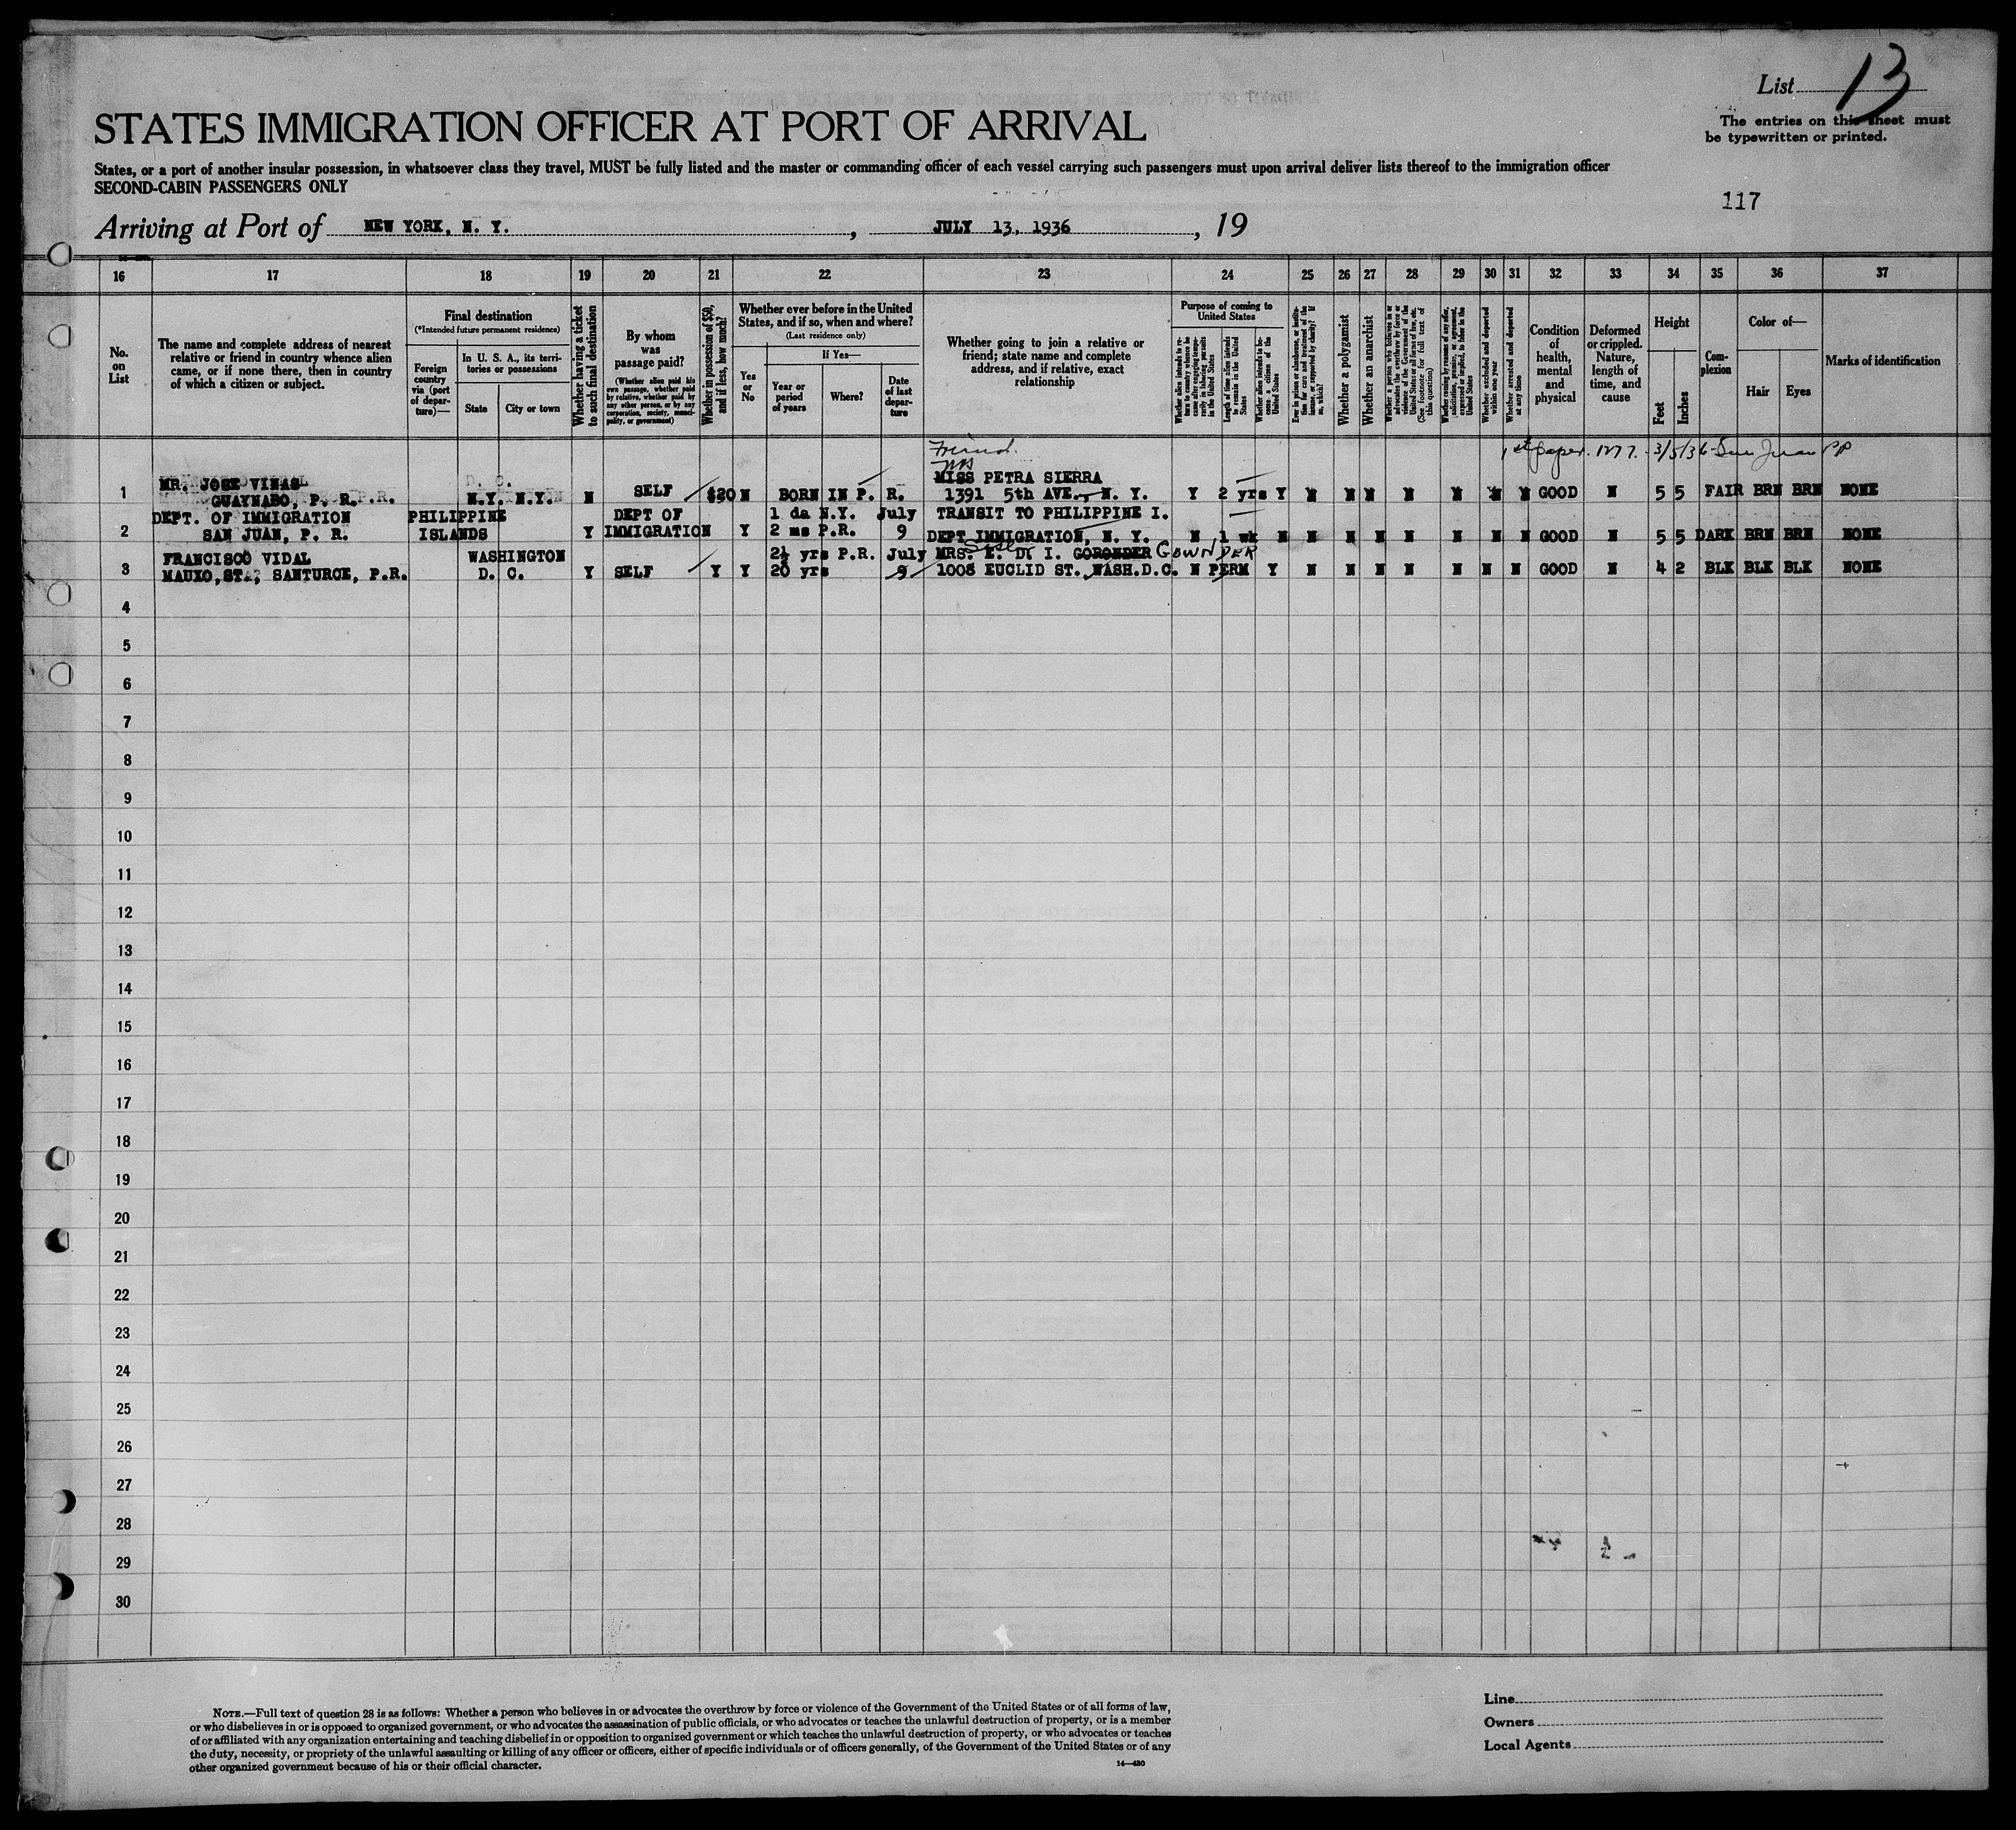 List 13
The entries on this sheet must
be typewritten or printed.
STATES IMMIGRATION OFFICER AT PORT OF ARRIVAL
States, or a port of another insular possession, in whatsoever class they travel, MUST be fully listed and the master or commanding officer of each vessel carrying such passengers must upon arrival deliver lists thereof to the immigration officer
SECOND-CABIN PASSENGERS ONLY
117
Arriving at Port of NEW YORK, N. Y. , JULY 13, 1936 , 19
16 17 18 19 20 21 22 23 24 25 26 27 28 29 30 31 32 33 34 35 36 37
No. on List
The name and complete address of nearest relative or friend in country whence alien came, or if none there, then in country of which a citizen or subject.
Final destination
(*Intended future permanent residence)
Foreign country via (port of departure)—
In U. S. A., its territories or possessions
State
City or town
Whether having a ticket to such final destination
By whom was passage paid?
(Whether alien paid his own passage, whether paid by relative, whether paid by any other person, or by any corporation, society, municipality, or government)
Whether in possession of $50, and if less, how much?
Whether ever before in the United States, and if so, when and where?
(Last residence only)
Yes or No
If Yes—
Year or period of years
Where?
Date of last departure
Whether going to join a relative or friend; state name and complete address, and if relative, exact relationship
Purpose of coming to United States
Whether alien intends to return to country whence he came after engaging temporarily in laboring pursuits in the United States
Length of time alien intends to remain in the United States
Whether alien intends to become a citizen of the United States
Ever in prison or almshouse, or institution for care and treatment of the insane, or supported by charity? If so, which?
Whether a polygamist
Whether an anarchist
Whether a person who believes in or advocates the overthrow by force or violence of the Government of the United States or all forms of law, etc. (See footnote for full text of this question)
Whether coming by reason of any offer, solicitation, promise, or agreement, expressed or implied, to labor in the United States
Whether excluded and deported within one year
Whether arrested and deported at any time
Condition of health, mental and physical
Deformed or crippled. Nature, length of time, and cause
Height
Feet
Inches
Complexion
Color of—
Hair
Eyes
Marks of identification
Friend. 1st paper. 1277. 3/5/36 San Juan PR
MRS
MR. JOSE VINAS MISS PETRA SIERRA
1 GUAYNABO, P. R. N.Y. N.Y. N SELF $20 N BORN IN P. R. 1391 5th AVE., N. Y. Y 2 yrs Y N N N N N N N GOOD N 5 5 FAIR BRN BRN NONE
DEPT. OF IMMIGRATION PHILIPPINE DEPT OF 1 da N.Y. July TRANSIT TO PHILIPPINE I.
2 SAN JUAN, P. R. ISLANDS Y IMMIGRATION Y 2 ms P.R. 9 DEPT IMMIGRATION, N. Y. N 1 wk N N N N N N N N GOOD N 5 5 DARK BRN BRN NONE
FRANCISCO VIDAL WASHINGTON 2½ yrs P.R. July MRS. E. DE I. GORONDER GOWNDER
3 MAUXO, STA, SANTURCE, P.R. D. C. Y SELF Y Y 20 yrs 9 1008 EUCLID ST. WASH.D.C. N PERM Y N N N N N N N GOOD N 4 2 BLK BLK BLK NONE
4
5
6
7
8
9
10
11
12
13
14
15
16
17
18
19
20
21
22
23
24
25
26
27
28
29
30
NOTE.—Full text of question 28 is as follows: Whether a person who believes in or advocates the overthrow by force or violence of the Government of the United States or of all forms of law,
or who disbelieves in or is opposed to organized government, or who advocates the assassination of public officials, or who advocates or teaches the unlawful destruction of property, or is a member
of or affiliated with any organization entertaining and teaching disbelief in or opposition to organized government or which teaches the unlawful destruction of property, or who advocates or teaches
the duty, necessity, or propriety of the unlawful assaulting or killing of any officer or officers, either of specific individuals or of officers generally, of the Government of the United States or of any
other organized government because of his or their official character.
14—430
Line
Owners
Local Agents